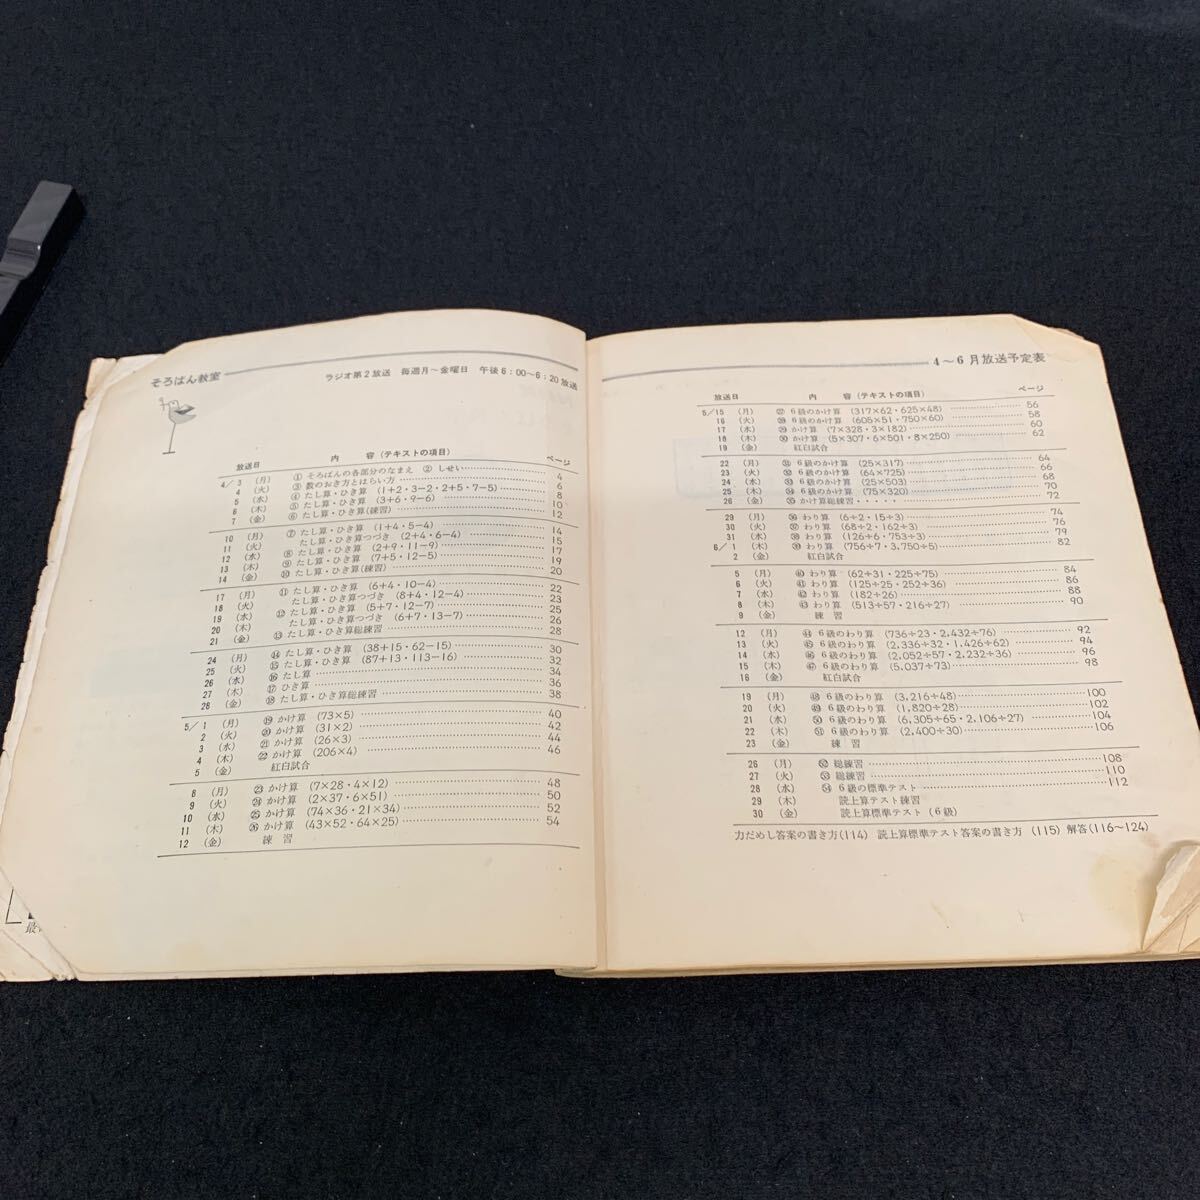 そろばん教室
ラジオ第2放送 毎週月～金曜日 午後6：00～6：20放送
放送日 内 容(テキストの項目) ページ
4／3 (月) ① そろばんの各部分のなまえ ② しせい 4
4 (火) ③ 数のおき方とはらい方 6
5 (水) ④ たし算・ひき算 (1+2・3−2・2+5・7−5) 8
6 (木) ⑤ たし算・ひき算 (3+6・9−6) 10
7 (金) ⑥ たし算・ひき算(練習) 12
10 (月) ⑦ たし算・ひき算 (1+4・5−4) 14
11 (火) たし算・ひき算つづき (2+4・6−4) 15
12 (水) ⑧ たし算・ひき算 (2+9・11−9) 17
13 (木) ⑨ たし算・ひき算 (7+5・12−5) 19
14 (金) ⑩ たし算・ひき算(練習) 20
17 (月) ⑪ たし算・ひき算 (6+4・10−4) 22
18 (火) たし算・ひき算つづき (8+4・12−4) 23
19 (水) ⑫ たし算・ひき算 (5+7・12−7) 25
20 (木) たし算・ひき算つづき (6+7・13−7) 26
21 (金) ⑬ たし算・ひき算総練習 28
24 (月) ⑭ たし算・ひき算 (38+15・62−15) 30
25 (火) ⑮ たし算・ひき算 (87+13・113−16) 32
26 (水) ⑯ たし算 34
27 (木) ⑰ ひき算 36
28 (金) ⑱ たし算・ひき算総練習 38
5／1 (月) ⑲ かけ算 (73×5) 40
2 (火) ⑳ かけ算 (31×2) 42
3 (水) ㉑ かけ算 (26×3) 44
4 (木) ㉒ かけ算 (206×4) 46
5 (金) 紅白試合
8 (月) ㉓ かけ算 (7×28・4×12) 48
9 (火) ㉔ かけ算 (2×37・6×51) 50
10 (水) ㉕ かけ算 (74×36・21×34) 52
11 (木) ㉖ かけ算 (43×52・64×25) 54
12 (金) 練 習
4～6月放送予定表
放送日 内 容(テキストの項目) ページ
5／15 (月) ㉗ 6級のかけ算 (317×62・625×48) 56
16 (火) ㉘ 6級のかけ算 (605×51・750×60) 58
17 (水) ㉙ かけ算 (7×328・3×182) 60
18 (木) ㉚ かけ算 (5×307・6×501・8×250) 62
19 (金) 紅白試合
22 (月) ㉛ 6級のかけ算 (25×317) 64
23 (火) ㉜ 6級のかけ算 (64×725) 66
24 (水) ㉝ 6級のかけ算 (25×503) 68
25 (木) ㉞ 6級のかけ算 (75×320) 70
26 (金) ㉟ かけ算総練習 72
29 (月) ㊱ わり算 (6÷2・15÷3) 74
30 (火) ㊲ わり算 (68÷2・162÷3) 76
31 (水) ㊳ わり算 (126÷6・753÷3) 79
6／1 (木) ㊴ わり算 (756÷7・3,750÷5) 82
2 (金) 紅白試合
5 (月) ㊵ わり算 (62÷31・225÷75) 84
6 (火) ㊶ わり算 (125÷25・252÷36) 86
7 (水) ㊷ わり算 (182÷26) 88
8 (木) ㊸ わり算 (513÷57・216÷27) 90
9 (金) 練 習
12 (月) ㊹ 6級のわり算 (736÷23・2,432÷76) 92
13 (火) ㊺ 6級のわり算 (2,336÷32・1,426÷62) 94
14 (水) ㊻ 6級のわり算 (2,052÷57・2,232÷36) 96
15 (木) ㊼ 6級のわり算 (5,037÷73) 98
16 (金) 紅白試合
19 (月) ㊽ 6級のわり算 (3,216÷48) 100
20 (火) ㊾ 6級のわり算 (1,820÷28) 102
21 (水) ㊿ 6級のわり算 (6,305÷65・2,106÷27) 104
22 (木) 51 6級のわり算 (2,400÷30) 106
23 (金) 練 習
26 (月) 52 総練習 108
27 (火) 53 総練習 110
28 (水) 54 6級の標準テスト 112
29 (木) 読上算テスト練習
30 (金) 読上算標準テスト(6級)
力だめし答案の書き方(114) 読上算標準テスト答案の書き方 (115) 解答(116～124)